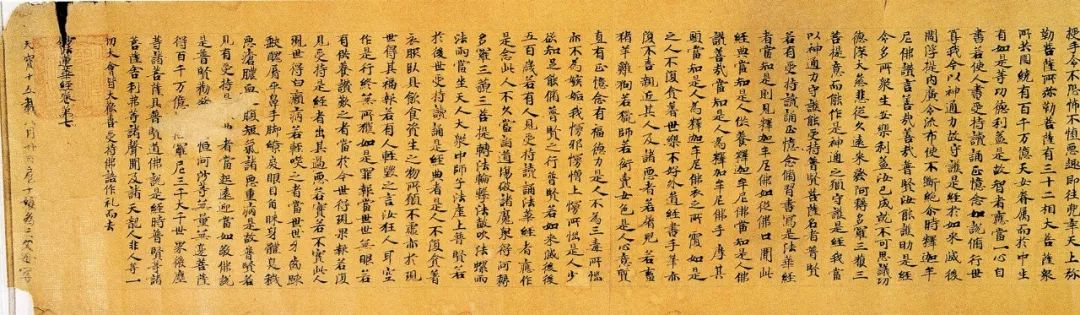 授手令不恐怖不墮惡趣即往兜率天上弥
勒菩薩所弥勒菩薩有三十二相大菩薩眾
所共圍繞有百千万億天女眷屬而於中生
有如是等功德利益是故智者應當一心自
書若使人書受持讀誦正憶念如說脩行世
尊我今以神通力故守護是經於如來滅後
閻浮提內廣令流布使不斷絕爾時釋迦牟
尼佛讚言善哉善哉普賢汝能護助是經
令多所眾生安樂利益汝已成就不可思議功
德深大慈悲從久遠來發阿耨多羅三藐三
菩提意而能作是神通之願守護是經我當
以神通力守護能受持普賢菩薩名者普賢
若有受持讀誦正憶念脩習書寫是法華經
者當知是人則見釋迦牟尼佛如從佛口聞此
經典當知是人供養釋迦牟尼佛當知是人佛
讚善哉當知是人為釋迦牟尼佛手摩其
頭當知是人為釋迦牟尼佛衣之所覆如是
之人不復貪著世樂不好外道經書手筆亦
復不喜親近其人及諸惡者若屠兒若畜
猪羊雞狗若獵師若衒賣女色是人心意質
直有正憶念有福德力是人不為三毒所惱
亦不為嫉妬我慢邪慢增上慢所惱是人少
欲知足能脩普賢之行普賢若如來滅後後
五百歲若有人見受持讀誦法華經者應作
是念此人不久當詣道場破諸魔眾得阿耨
多羅三藐三菩提轉法輪擊法鼓吹法螺雨
法雨當坐天人大眾中師子法座上普賢若
於後世受持讀誦是經典者是人不復貪著
衣服臥具飲食資生之物所願不虛亦於現
世得其福報若有人輕毀之言汝狂人耳空
作是行終無所獲如是罪報當世世無眼若
有供養讚歎之者當於今世得現果報若復
見受持是經者出其過惡若實若不實此人
現世得白癩病若有輕笑之者當世世牙齒踈
缺醜脣平鼻手脚繚戾眼目角睞身體臭穢
惡瘡膿血水腹短氣諸惡重病是故普賢若
見有受持是經典者當起遠迎當如敬佛說
是普賢勸發品時恒河沙等無量無邊菩薩
得百千万億旋陀羅尼三千大千世界微塵
等諸菩薩具普賢道佛說是經時普賢等諸
菩薩舍利弗等諸聲聞及諸天龍人非人等一
切大會皆大歡喜受持佛語作礼而去
蓮華經卷第七
天寶十五載 月